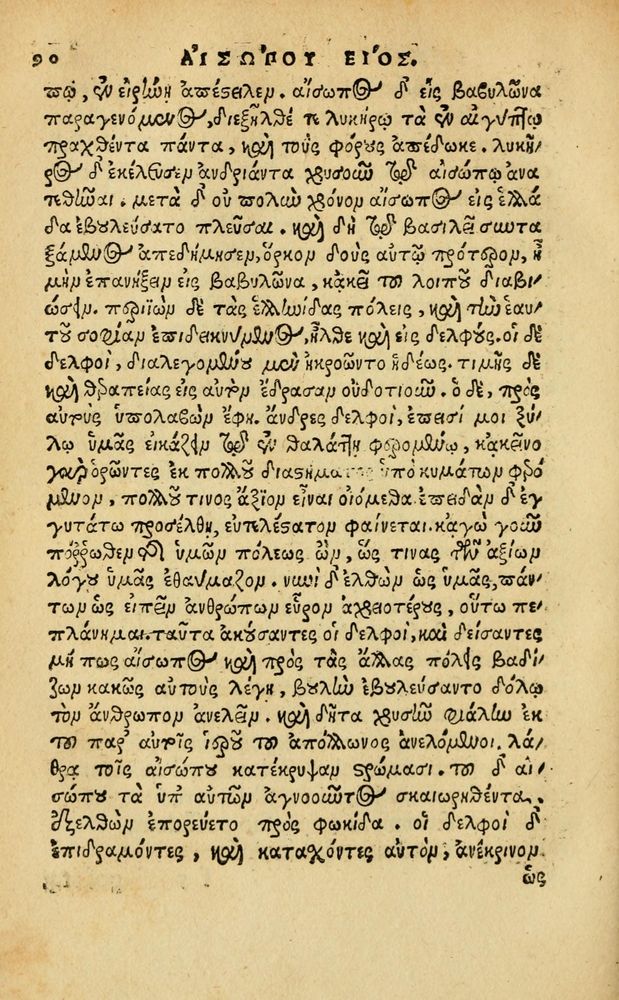 90 ΑἸΣΏΠΟΥ ΒΊΟΣ.
πῳ, ἐν εἰρήνῃ ἀπέστειλεν. αἴσωπος δ' εἰς βαβυλῶνα
παραγενόμενος, διεξῆλθέ τε λυκήρῳ τὰ ἐν αἰγύπτῳ
πραχθέντα πάντα, καὶ τοὺς φόρους ἀπέδωκε. λυκῆ-
ρος δ' ἐκέλευσεν ἀνδριάντα χρυσοῦν τῷ αἰσώπῳ ἀνα
τεθῆναι. μετὰ δ' οὐ πολὺν χρόνον αἴσωπος εἰς ἑλλά
δα ἐβουλεύσατο πλεῦσαι. καὶ δὴ τῷ βασιλεῖ συντα
ξάμενος ἀπεδήμησεν, ὅρκον δοὺς αὐτῷ πρότερον, ἦ
μὴν ἐπανήξειν εἰς βαβυλῶνα, κἀκεῖ τοῦ λοιποῦ διαβι-
ώσειν. περιϊὼν δὲ τὰς ἑλληνίδας πόλεις, καὶ τὴν ἑαυ-
τοῦ σοφίαν ἐπιδεικνύμενος, ἦλθε καὶ εἰς δελφούς. οἱ δὲ
δελφοὶ, διαλεγομένου μὲν ἠκροῶντο ἡδέως. τιμῆς δὲ
καὶ θεραπείας εἰς αὐτὸν ἔδρασαν οὐδοτιοῦν. ὁ δὲ, πρὸς
αὐτοὺς ὑπολαβὼν ἔφη. ἄνδρες δελφοὶ, ἔπεισί μοι ξύ-
λῳ ὑμᾶς εἰκάζειν τῷ ἐν θαλάττῃ φερομένῳ, κἀκεῖνο
γὰρ ὁρῶντες ἐκ πολλοῦ διαστήματος ὑπὸ κυμάτων φερό
μενον, πολλοῦ τινος ἄξιον εἶναι οἰόμεθα. ἐπειδὰν δ' ἐγ
γυτάτω προσέλθῃ, εὐτελέστατον φαίνεται. κἀγὼ γοῦν
πόρρωθεν τῆς ὑμῶν πόλεως ὢν, ὥς τινας τῶν ἀξίων
λόγου ὑμᾶς ἐθαύμαζον. νυνὶ δ' ἐλθὼν ὡς ὑμᾶς, πάν-
των ὡς εἰπεῖν ἀνθρώπων εὗρον ἀχρειοτέρους, οὕτω πε-
πλάνημαι. ταῦτα ἀκούσαντες οἱ δελφοὶ, καὶ δείσαντες
μή πως αἴσωπος καὶ πρὸς τὰς ἄλλας πόλεις βαδί-
ζων κακῶς αὐτοὺς λέγῃ, βουλὴν ἐβουλεύσαντο δόλῳ
τὸν ἄνθρωπον ἀνελεῖν. καὶ δῆτα χρυσῆν φιάλην ἐκ
τοῦ παρ' αὐτοῖς ἱεροῦ τοῦ ἀπόλλωνος ἀνελόμενοι. λά-
θρα τοῖς αἰσώπου κατέκρυψαν στρώμασι. τοῦ δ' αἰ-
σώπου τὰ ὑπ' αὐτῶν ἀγνοοῦντος σκαιωρηθέντα,
ἐξελθὼν ἐπορεύετο πρὸς φωκίδα. οἱ δελφοὶ δ'
ἐπιδραμόντες, καὶ κατασχόντες αὐτὸν, ἀνέκρινον
ὡς